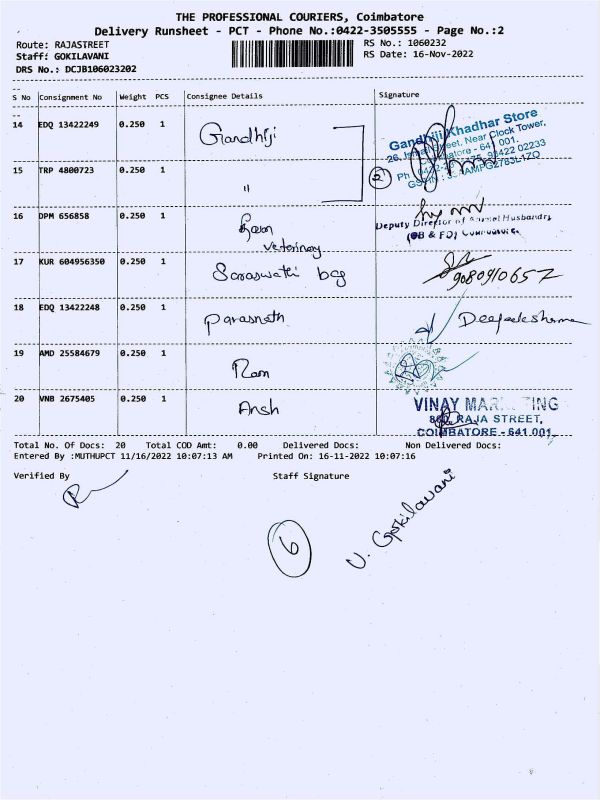 THE PROFESSIONAL COURIERS, Coimbatore
Delivery Runsheet - PCT - Phone No.:0422-3505555 - Page No.:2
Route: RAJASTREET
RS No.: 1060232
Staff: GOKILAVANI
RS Date: 16-Nov-2022
DRS No.: DCJB106023202
S No Consignment No Weight PCS Consignee Details Signature
14 EDQ 13422249 0.250 1 Gandhiji
Gandhiji Khadhar Store
Street, Near Clock Tower,
641 001.
15 TRP 4800723 0.250 1 "
2
16 DPM 656858 0.250 1
veterinary
Deputy Director of Animal Husbandry
17 KUR 604956350 0.250 1 Saraswathi bag
9080910657
18 EDQ 13422248 0.250 1 Parasnath
19 AMD 25584679 0.250 1 Ram
20 VNB 2675405 0.250 1 Ansh
VINAY
RAJA STREET,
COIMBATORE - 641 001.
Total No. Of Docs: 20 Total COD Amt: 0.00 Delivered Docs: Non Delivered Docs:
Entered By :MUTHUPCT 11/16/2022 10:07:13 AM Printed On: 16-11-2022 10:07:16
Verified By Staff Signature
6
V. Gokilavani